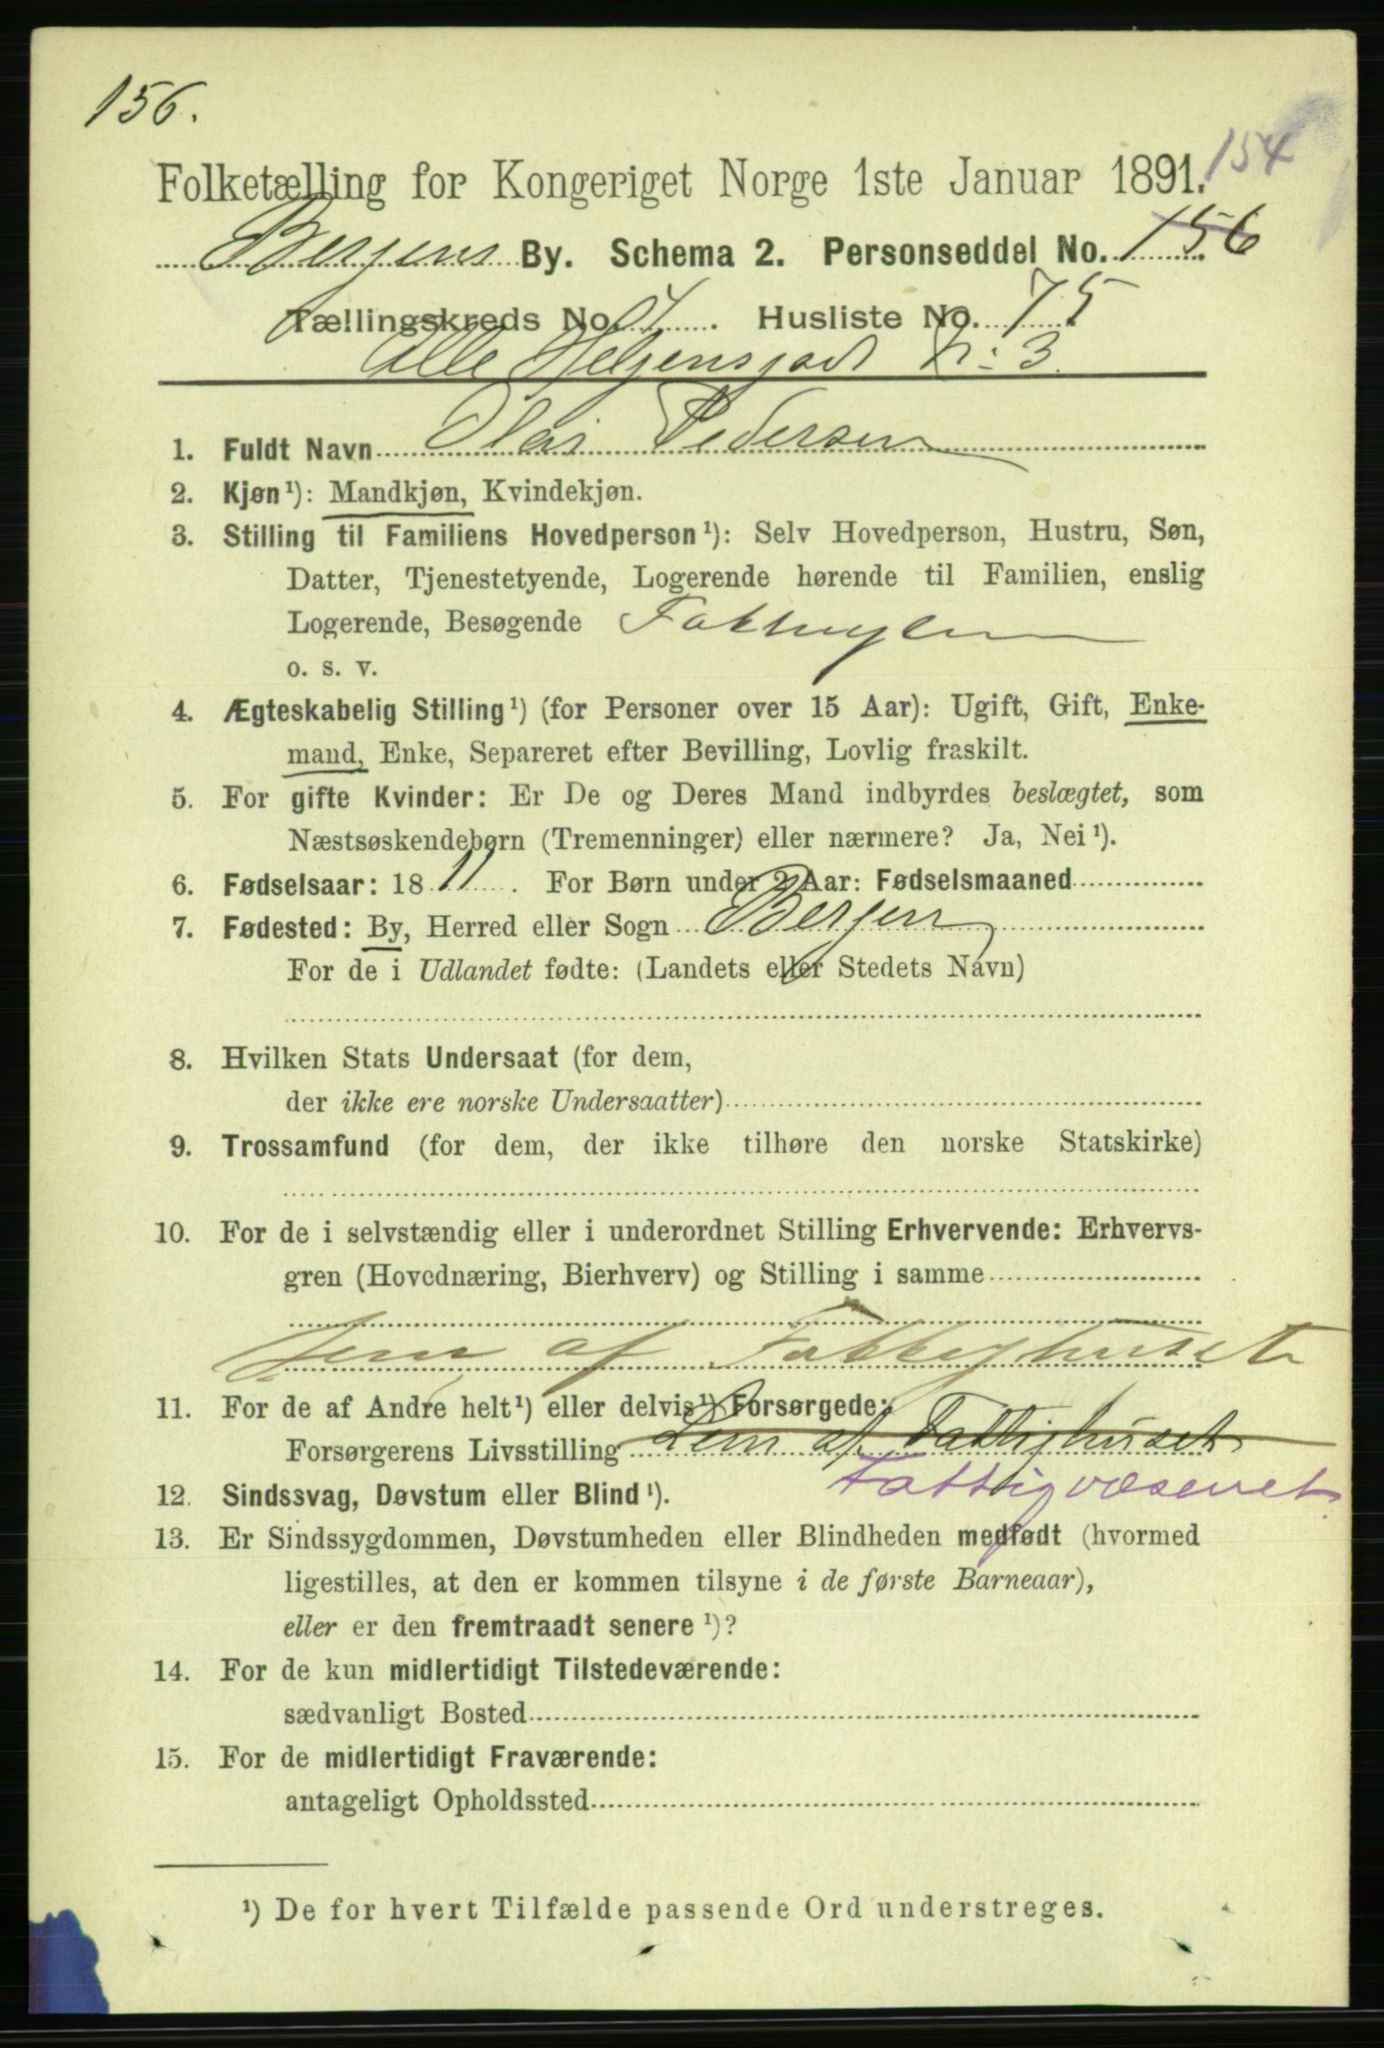 156.
154
Folketælling for Kongeriget Norge 1ste Januar 1891.
Bergens By. Schema 2. Personseddel No. 156
Tællingskreds No. 7. Husliste No. 75
Alle Helgensgad N: 3.
1. Fuldt Navn Olai Pedersen
2. Kjøn¹): Mandkjøn, Kvindekjøn.
3. Stilling til Familiens Hovedperson¹): Selv Hovedperson, Hustru, Søn,
Datter, Tjenestetyende, Logerende hørende til Familien, enslig
Logerende, Besøgende Fattiglem
o. s. v.
4. Ægteskabelig Stilling¹) (for Personer over 15 Aar): Ugift, Gift, Enke-
mand, Enke, Separeret efter Bevilling, Lovlig fraskilt.
5. For gifte Kvinder: Er De og Deres Mand indbyrdes beslægtet, som
Næstsøskendebørn (Tremenninger) eller nærmere? Ja, Nei¹).
6. Fødselsaar: 1811. For Børn under 2 Aar: Fødselsmaaned
7. Fødested: By, Herred eller Sogn Bergen
For de i Udlandet fødte: (Landets eller Stedets Navn)
8. Hvilken Stats Undersaat (for dem,
der ikke ere norske Undersaatter)
9. Trossamfund (for dem, der ikke tilhøre den norske Statskirke)
10. For de i selvstændig eller i underordnet Stilling Erhvervende: Erhvervs-
gren (Hovednæring, Bierhverv) og Stilling i samme
Lem af Fattighuset
11. For de af Andre helt¹) eller delvis¹) Forsørgede:
Forsørgerens Livsstilling Lem af Fattighuset
Fattigvæsenet
12. Sindssvag, Døvstum eller Blind¹).
13. Er Sindssygdommen, Døvstumheden eller Blindheden medfødt (hvormed
ligestilles, at den er kommen tilsyne i de første Barneaar),
eller er den fremtraadt senere¹)?
14. For de kun midlertidigt Tilstedeværende:
sædvanligt Bosted
15. For de midlertidigt Fraværende:
antageligt Opholdssted
¹) De for hvert Tilfælde passende Ord understreges.